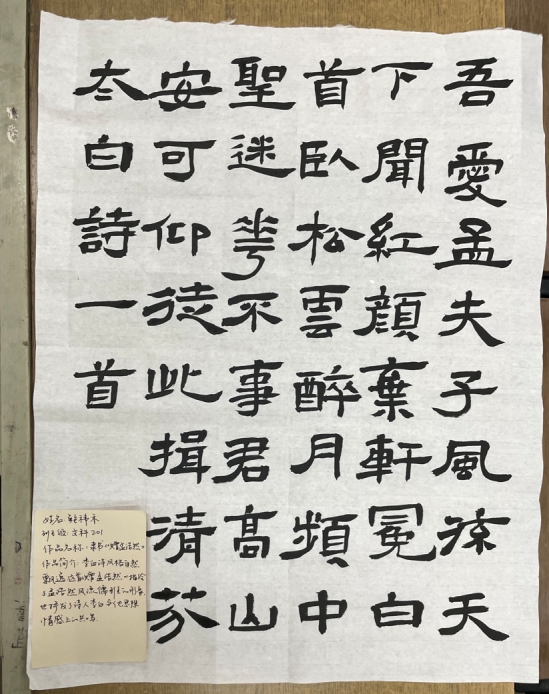 吾愛孟夫子風流天
下聞紅顏棄軒冕白
首臥松雲醉月頻中
聖迷花不事君高山
安可仰徒此揖清芬
太白詩一首
姓名
作品名称：隶书《赠孟浩然》
作品简介：李白诗风格自然
飘逸